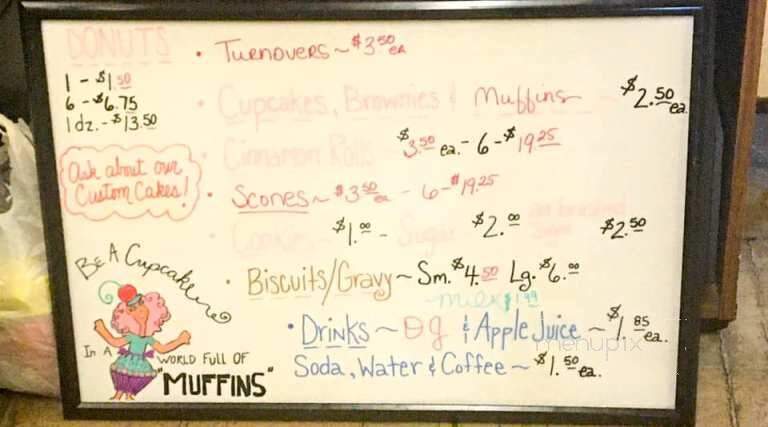 DONUTS
1 - $1.50
6 - $6.75
1 dz. - $13.50
Ask about our
Custom Cakes!
• Turnovers ~ $3.50 ea
• Cupcakes, Brownies & Muffins ~ $2.50 ea.
• Cinnamon Rolls $3.50 ea. - 6 - $19.25
• Scones ~ $3.50 ea - 6 - $19.25
• Cookies $1.00 - Sugar $2.00 $2.50
• Biscuits/Gravy ~ Sm. $4.50 Lg. $6.00
~milk $1.99
• Drinks ~ OJ & Apple Juice ~ $1.85 ea.
Soda, Water & Coffee ~ $1.50 ea.
Be A Cupcake
In A WORLD FULL OF
"MUFFINS"
menupix